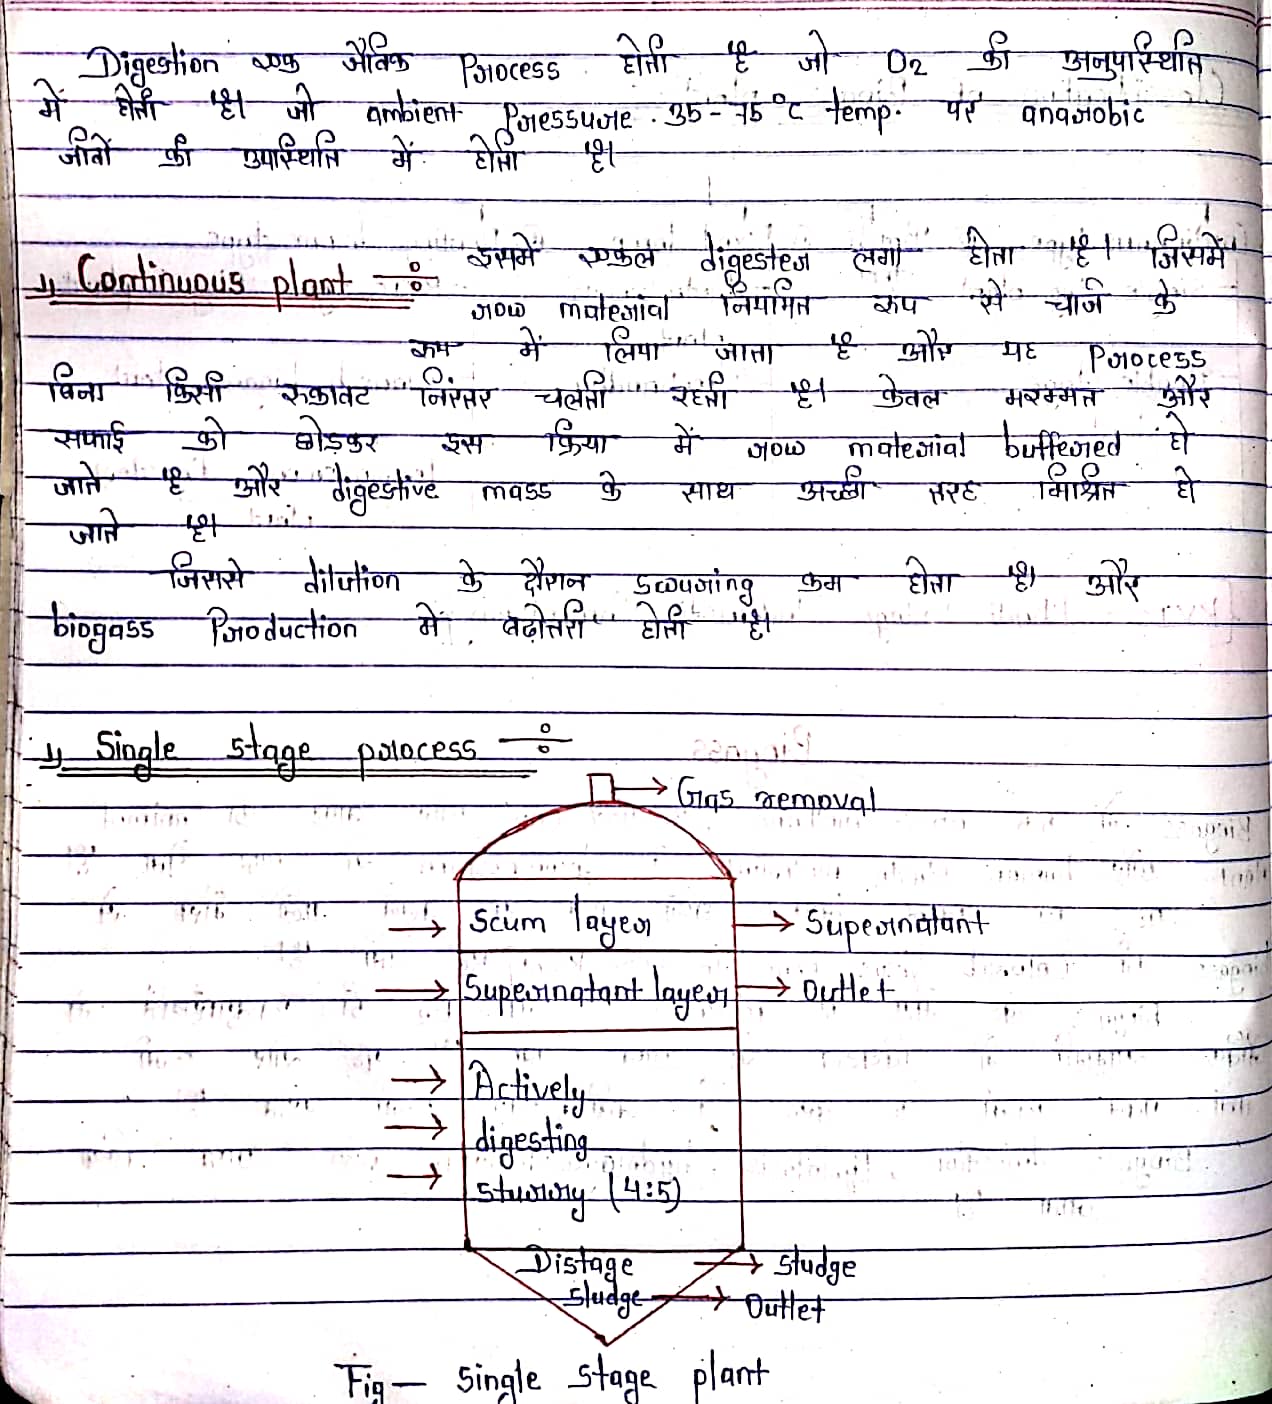 Digestion एक जैविक Process होती है जो O2 की अनुपस्थिति
में होती है। जो ambient Pressure . 35-75°C temp. पर anarobic
जीवों की उपस्थिति में होती है।
1) Continuous plant ÷ इसमें एकल digester लगा होता है। जिसमें
row material नियमित रूप से चार्ज के
रूप में लिया जाता है और यह Process
बिना किसी रुकावट निरंतर चलती रहती है। केवल मरम्मत और
सफाई को छोड़कर इस क्रिया में row material buffered हो
जाते है और digestive mass के साथ अच्छी तरह मिश्रित हो
जाते है।
जिससे dilution के दौरान scouring कम होता है। और
biogass Production में बढ़ोत्तरी होती है।
1) Single stage process ÷
Gas removal
Scum layer → Supernatant
Supernatant layer → Outlet
Actively
digesting
sturry (4:5)
Distage → studge
sludge → Outlet
Fig — Single Stage plant